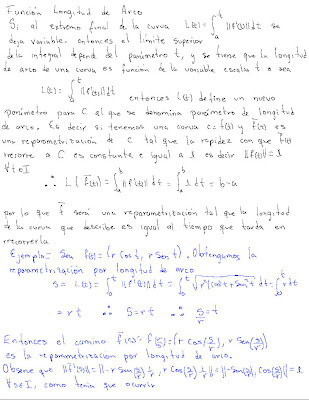 Función Longitud de Arco
Si al extremo final de la curva L(t)=∫ₐᵗ ||f'(t)|| dt se
deja variable. entonces el límite superior
de la integral depende del parámetro t, y se tiene que la longitud
de arco de una curva es función de la variable escalar t o sea
L(t)=∫ₐᵗ ||f'(t)|| dt
entonces L(t) define un nuevo
parámetro para C al que se denomina parámetro de longitud
de arco. Es decir si tenemos una curva c=f(t) y f̄(t) es
una reparametrización de C tal que la rapidez con que f̄(t)
recorre a C es constante e igual a 1 es decir ||f̄'(t)||=1
∀t∈I
∴ L(f̄(t))=∫ₐᵇ ||f'(t)|| dt=∫ₐᵇ 1 dt=b-a
por lo que f̄ será una reparametrización tal que la longitud
de la curva que describe es igual al tiempo que tarda en
recorrerla
Ejemplo.- Sea f(t)=(r Cos t, r Sen t). Obtengamos la
reparametrización por longitud de arco
s= L(t)=∫₀ᵗ ||f'(t)|| dt=∫₀ᵗ √r²(Cos²t+Sen²t) dt=∫₀ᵗ r dt
= r t ∴ S=r t ∴ S/r=t
Entonces el camino f̄(s)=f(s/r)=(r Cos(s/r), r Sen(s/r))
es la reparametrización por longitud de arco.
Observe que ||f̄'(s)||=||-r Sen(s/r) 1/r, r Cos(s/r) 1/r||=||-Sen(s/r), Cos(s/r)||=1
∀s∈I, como tenía que ocurrir